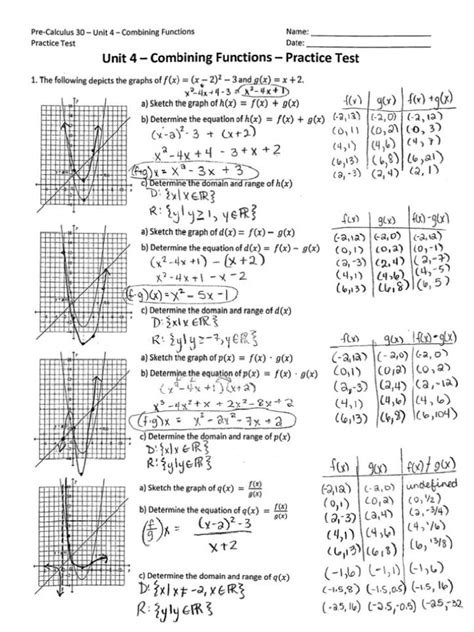 Pre-Calculus 30 – Unit 4 – Combining Functions
Name:
Practice Test
Date:
Unit 4 – Combining Functions – Practice Test
1. The following depicts the graphs of f(x) = (x − 2)² − 3 and g(x) = x + 2.
x²-4x+4-3 = x²-4x+1
a) Sketch the graph of h(x) = f(x) + g(x)
b) Determine the equation of h(x) = f(x) + g(x)
(x-2)²-3 + (x+2)
x²-4x+4-3+x+2
(f+g)x = x²-3x+3
c) Determine the domain and range of h(x)
D: {x|x∈ℝ}
R: {y|y≥1, y∈ℝ}
f(x) g(x) f(x)+g(x)
(-2,13) (-2,0) (-2,12)
(0,1) (0,2) (0,3)
(4,1) (4,6) (4,7)
(6,13) (6,8) (6,21)
(2,-3) (2,4) (2,1)
a) Sketch the graph of d(x) = f(x) − g(x)
b) Determine the equation of d(x) = f(x) − g(x)
(x²-4x+1) - (x+2)
x²-4x+1-x-2
(f-g)(x) = x²-5x-1
c) Determine the domain and range of d(x)
D: {x|x∈ℝ}
R: {y|y≥-7, y∈ℝ}
f(x) g(x) f(x)-g(x)
(-2,12) (-2,0) (-2,)
(0,1) (0,2) (0,-1)
(2,-3) (2,4) (2,-7)
(4,1) (4,6) (4,-5)
(6,13) (6,8) (6,5)
a) Sketch the graph of p(x) = f(x) · g(x)
b) Determine the equation of p(x) = f(x) · g(x)
(x²-4x+1)(x+2)
x³-4x²+x+2x²-8x+2
(f·g)x = x³-2x²-7x+2
c) Determine the domain and range of p(x)
D: {x|x∈ℝ}
R: {y|y∈ℝ}
f(x) g(x) f(x)·g(x)
(-2,12) (-2,0) (-2,0)
(0,1) (0,2) (0,2)
(2,-3) (2,4) (2,-12)
(4,1) (4,6) (4,6)
(6,13) (6,8) (6,104)
a) Sketch the graph of q(x) = f(x)/g(x)
b) Determine the equation of q(x) = f(x)/g(x)
(f/g)x = (x-2)²-3
x+2
c) Determine the domain and range of q(x)
D: {x|x≠-2, x∈ℝ}
R: {y|y∈ℝ}
f(x) g(x) f(x)/g(x)
(-2,12) (-2,0) undefined
(0,1) (0,2) (0,1/2)
(2,-3) (2,4) (2,-3/4)
(4,1) (4,6) (4,1/6)
(6,13) (6,8) (6,13/8)
(-1,6) (-1,1) (-1,6)